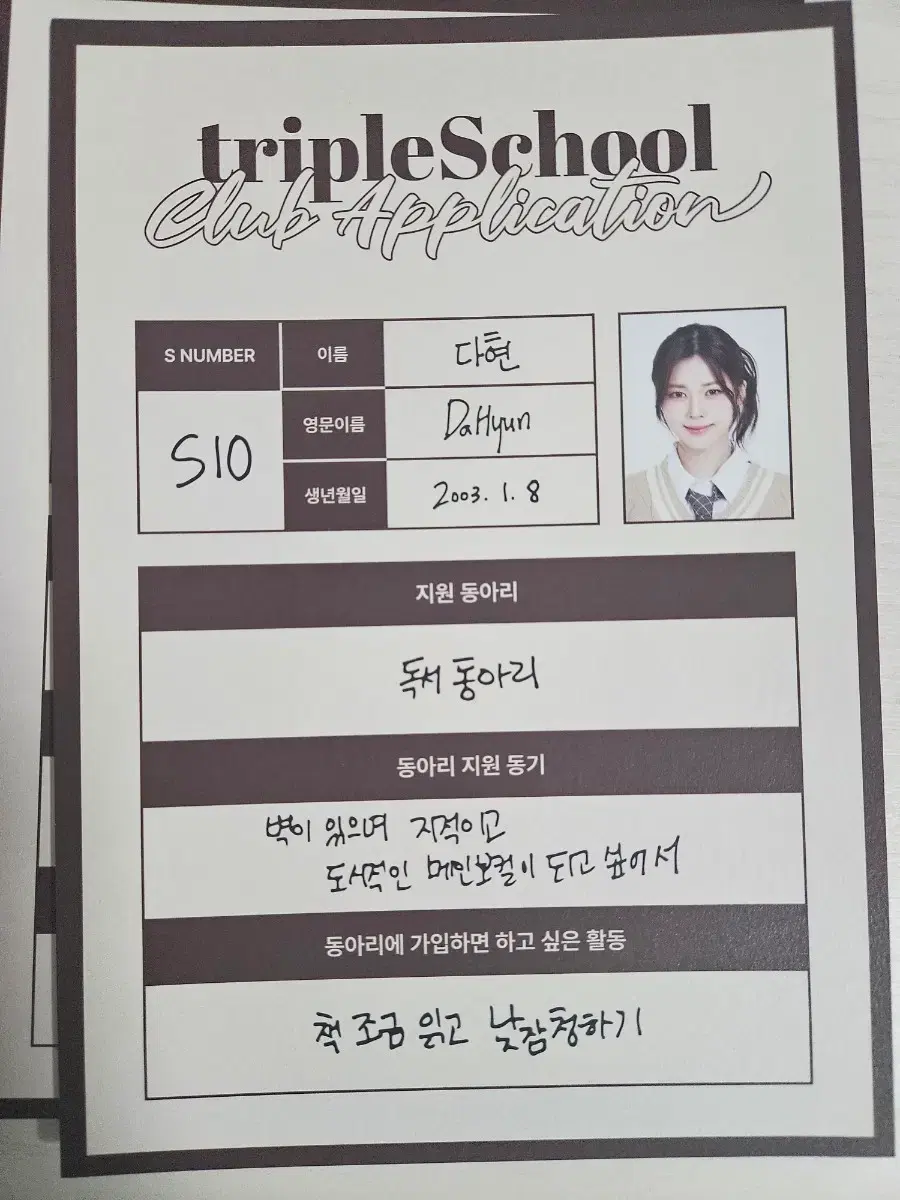 tripleSchool
Club Application
S NUMBER
S10
이름
다현
영문이름
DaHyun
생년월일
2003. 1. 8
지원 동아리
독서 동아리
동아리 지원 동기
벽이 있으며 지적이고
도시적인 메인보컬이 되고 싶어서
동아리에 가입하면 하고 싶은 활동
책 조금 읽고 낮잠청하기